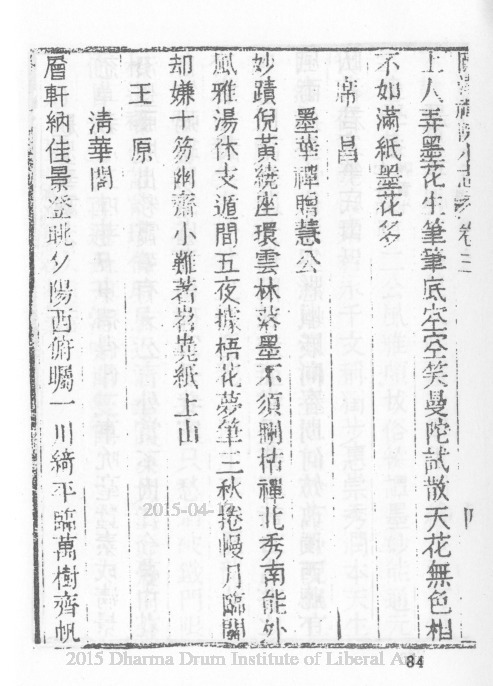 上人弄墨花生筆筆底空空笑曼陀試散天花無色相
不如滿紙墨花多
席昌
墨華禪贈慧公
妙蹟倪黃繞座環雲林潑墨不須刪枯禪北秀南能外
風雅湯休支遁間五夜據梧花夢筆三秋捲幔月臨關
却嫌十笏幽齋小難著嵒嶤紙上山
王原
清華閣
層軒納佳景登眺夕陽西俯矚一川綺平臨萬樹齊帆
2015-04-1
2015 Dharma Drum Institute of Liberal Ar
84